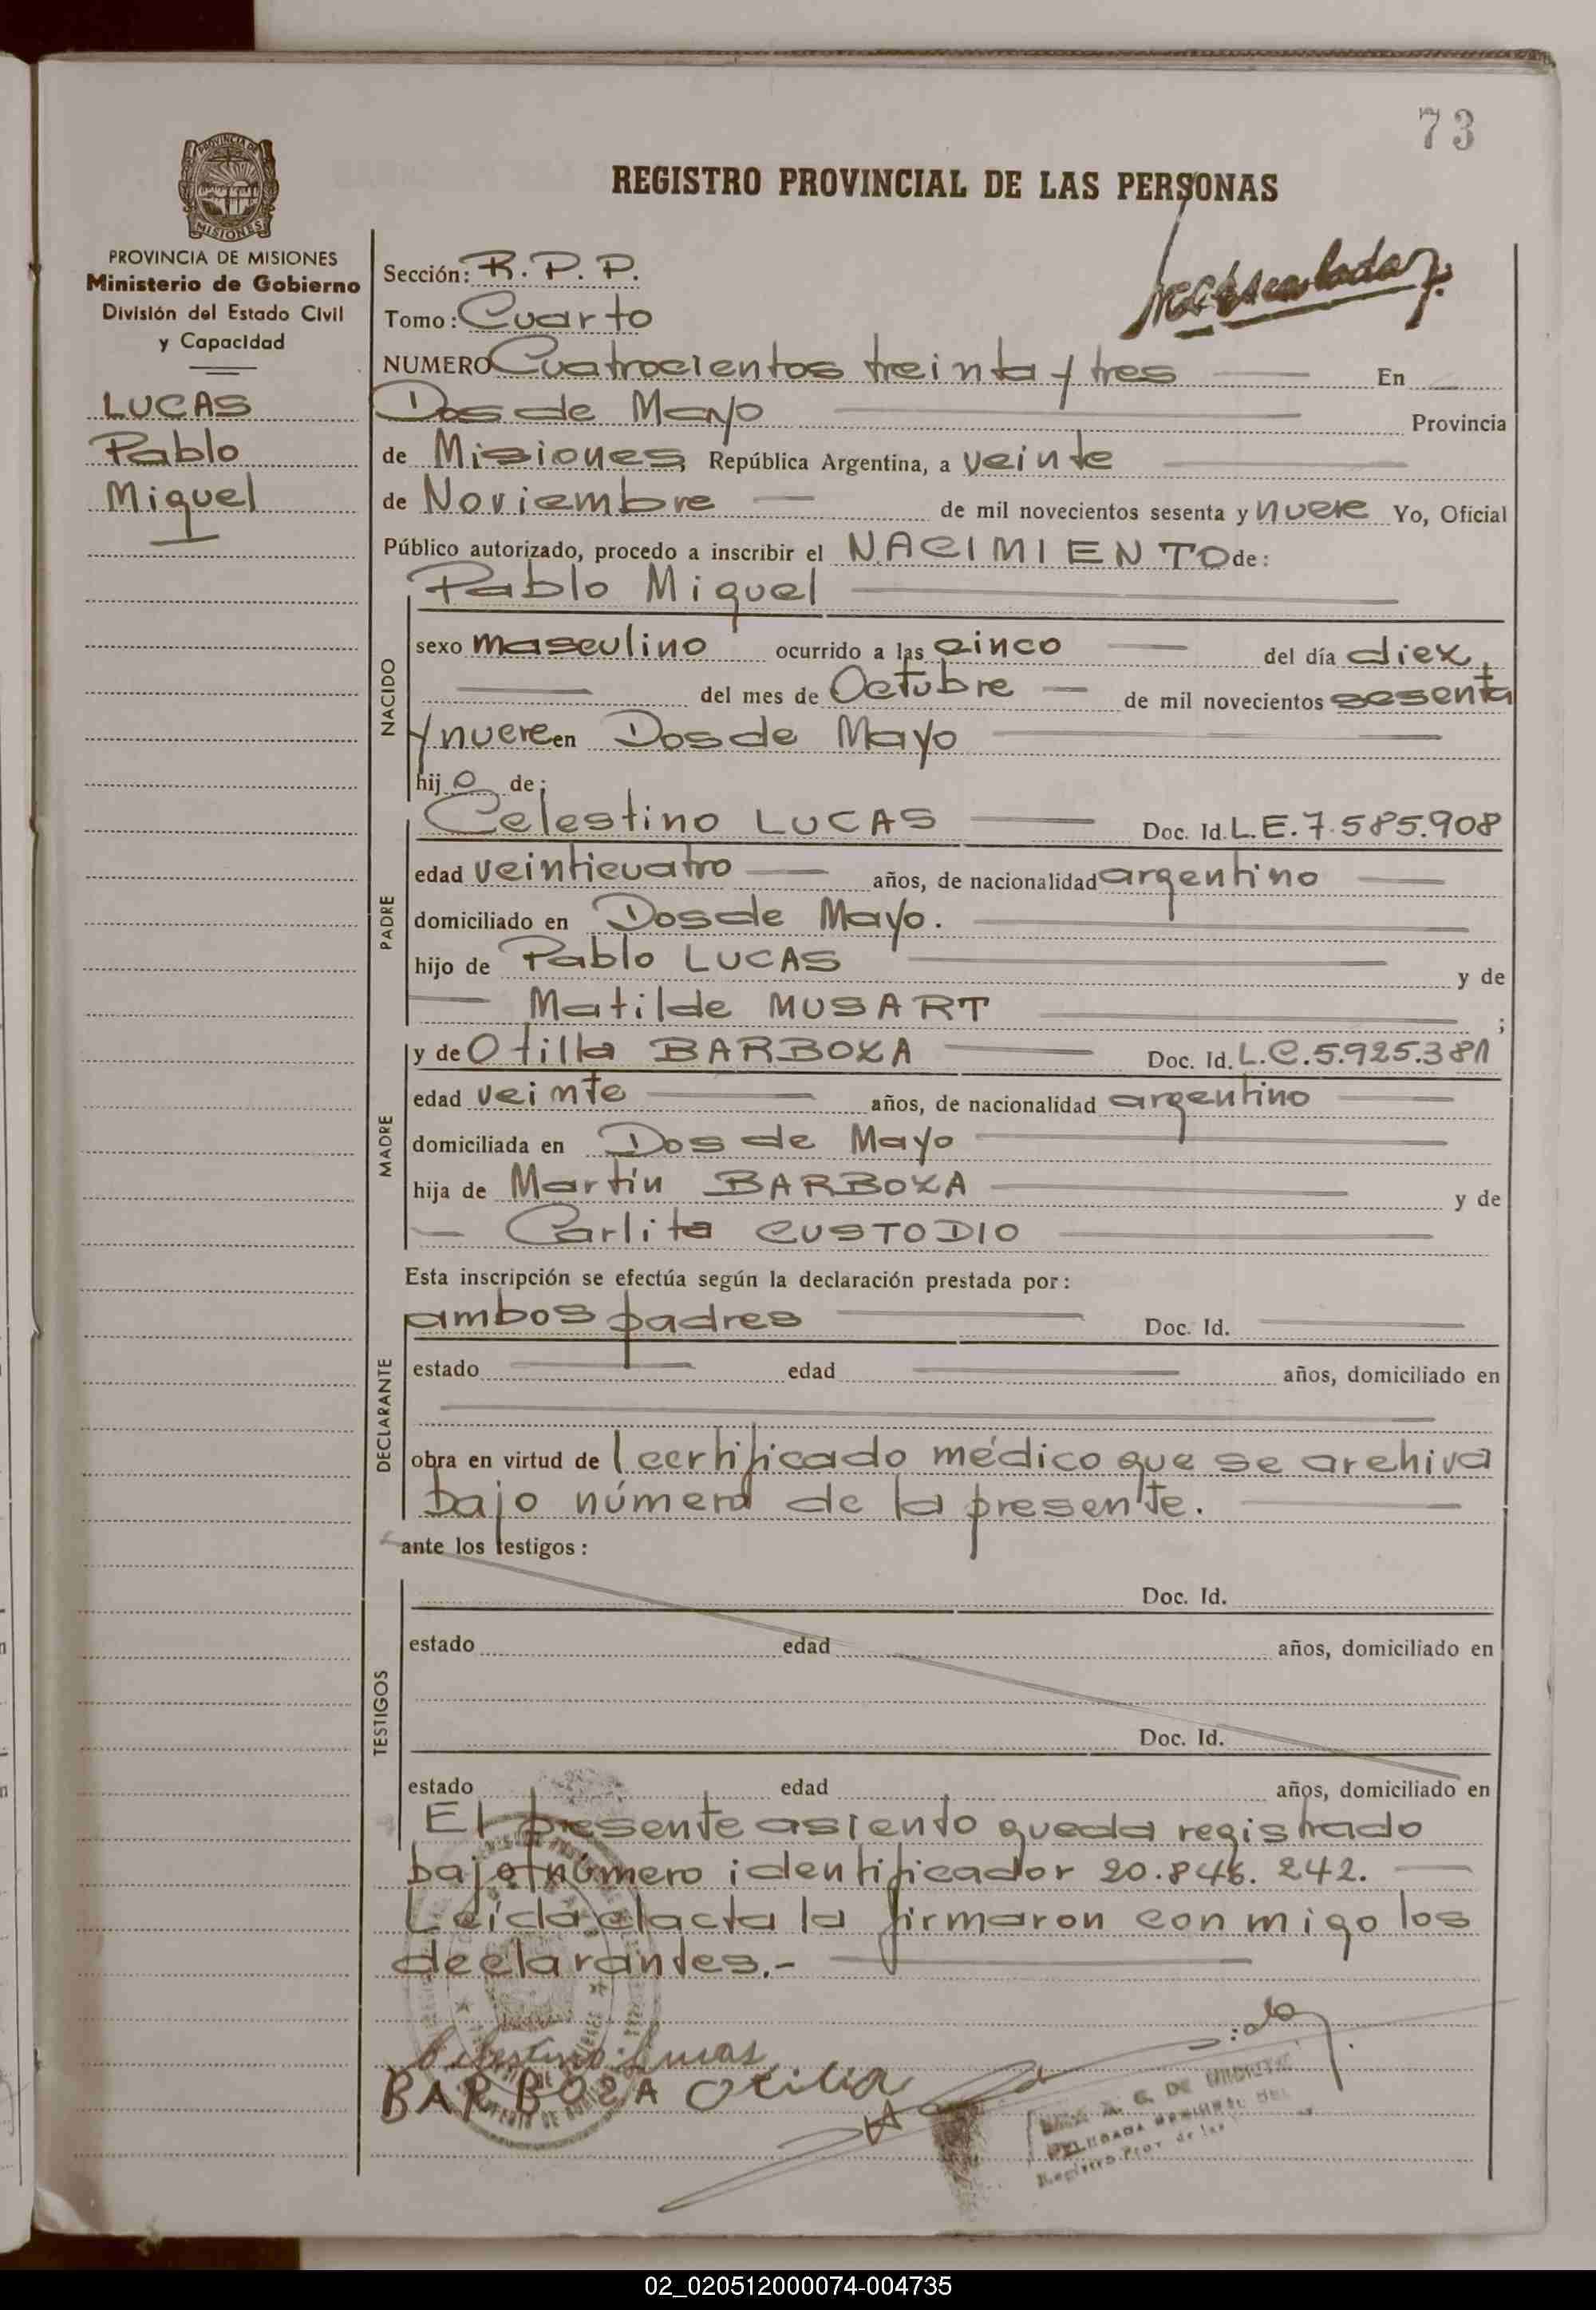 73
REGISTRO PROVINCIAL DE LAS PERSONAS
PROVINCIA DE MISIONES
Ministerio de Gobierno
División del Estado Civil
y Capacidad
LUCAS
Pablo
Miguel
Sección: R. P. P.
Tomo: Cuarto
NUMERO Cuatrocientos treinta y tres En
Dos de Mayo Provincia
de Misiones República Argentina, a veinte
de Noviembre de mil novecientos sesenta y nueve Yo, Oficial
Público autorizado, procedo a inscribir el NACIMIENTO de:
Pablo Miguel
NACIDO
sexo masculino ocurrido a las cinco del día diez
del mes de Octubre de mil novecientos sesenta
y nueve en Dos de Mayo
hijo de:
PADRE
Celestino LUCAS Doc. Id. L.E. 7.585.908
edad veinticuatro años, de nacionalidad argentino
domiciliado en Dos de Mayo.
hijo de Pablo LUCAS y de
Matilde MUSART ;
MADRE
y de Otilia BARBOZA Doc. Id. L.C. 5.925.381
edad veinte años, de nacionalidad argentino
domiciliada en Dos de Mayo
hija de Martín BARBOZA y de
Carlita CUSTODIO
Esta inscripción se efectúa según la declaración prestada por:
DECLARANTE
ambos padres Doc. Id.
estado edad años, domiciliado en
obra en virtud de l certificado médico que se archiva
bajo número de la presente.
ante los testigos:
TESTIGOS
Doc. Id.
estado edad años, domiciliado en
Doc. Id.
estado edad años, domiciliado en
El presente asiento queda registrado
bajo número identificador 20.846.242.
Leída el acta la firmaron conmigo los
declarantes.-
Celestino Lucas
BARBOZA Otilia
02_020512000074-004735